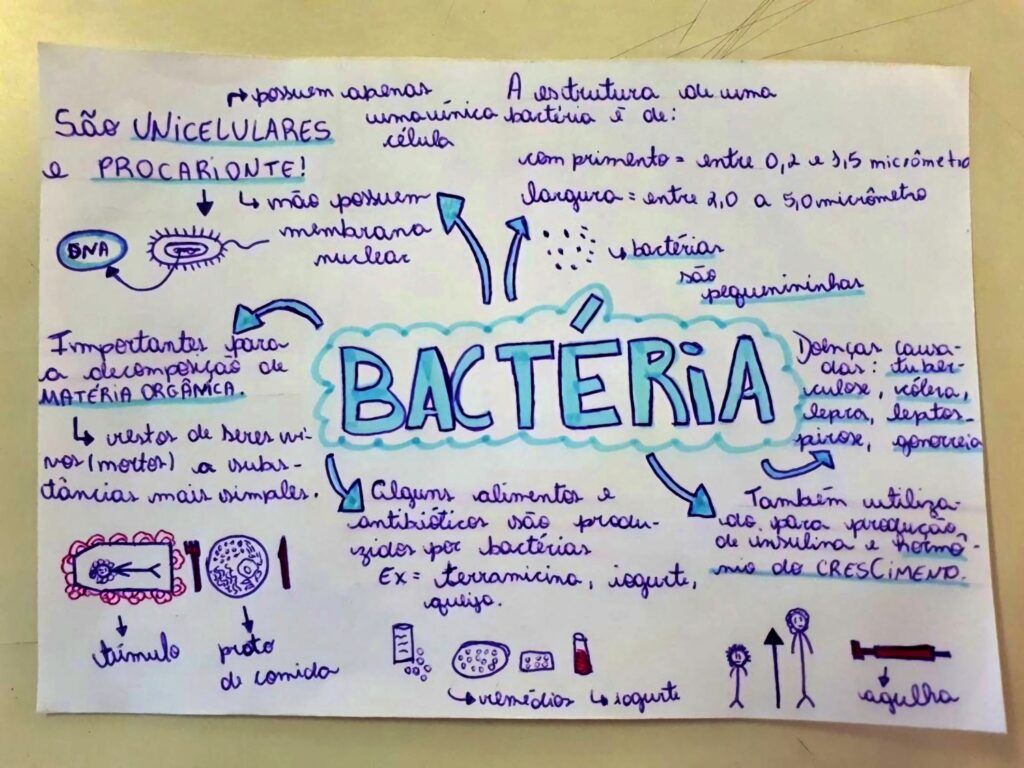 São UNICELULARES
e PROCARIONTE!
possuem apenas
uma única
célula
não possuem
membrana
nuclear
DNA
A estrutura de uma
bactéria é de:
comprimento = entre 0,2 e 1,5 micrômetro
largura = entre 2,0 a 5,0 micrômetro
bactérias
são
pequenininhas
BACTÉRIA
Importantes para
a decomposição de
MATÉRIA ORGÂNICA.
restos de seres vi-
vos (mortos) a subs-
tâncias mais simples.
túmulo
prato
de comida
Alguns alimentos e
antibióticos são produ-
zidos por bactérias
Ex = terramicina, iogurte,
queijo.
remédios
iogurte
Doenças causa-
das: tuber-
culose, cólera,
lepra, leptos-
pirose, gonorreia
Também utiliza-
do para produção
de insulina e hormô-
nio do CRESCIMENTO.
agulha